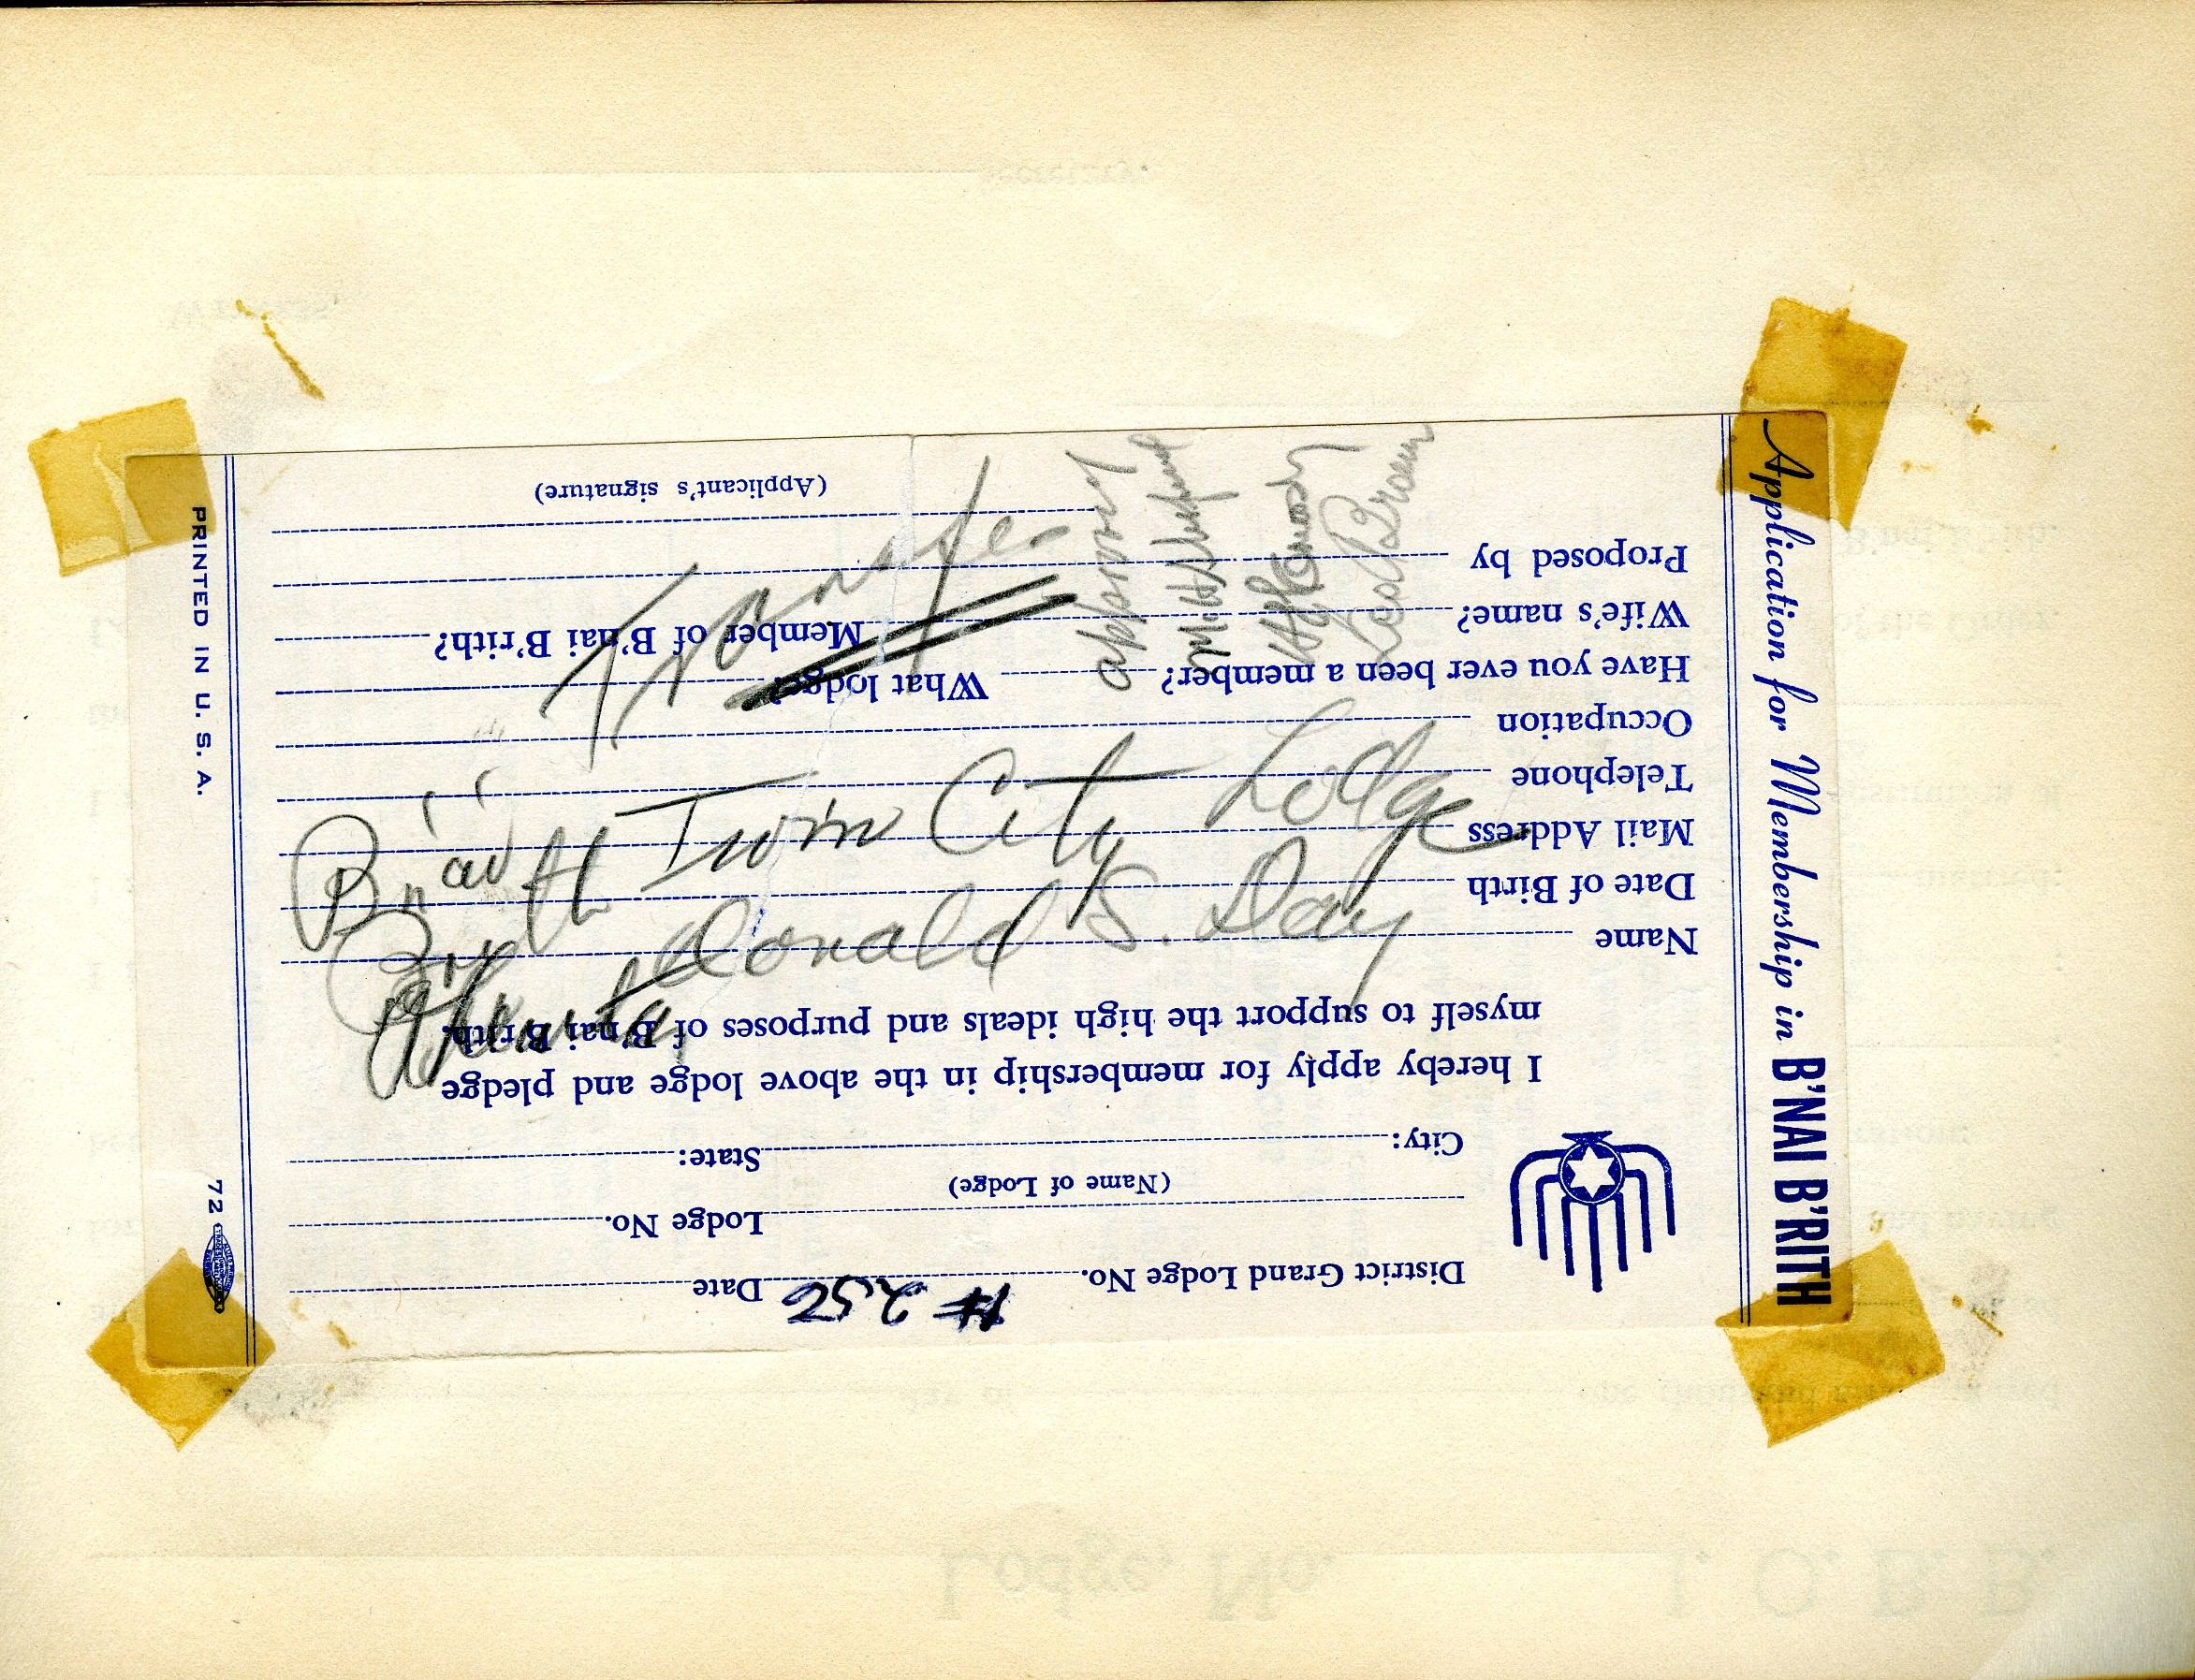 Application for Membership in B'NAI B'RITH
District Grand Lodge No. # 256 Date
Lodge No.
(Name of Lodge)
City: State:
I hereby apply for membership in the above lodge and pledge
myself to support the high ideals and purposes of B'nai B'rith.
Name
Date of Birth
Mail Address
Telephone
Occupation
Have you ever been a member? What lodge?
Wife's name? Member of B'nai B'rith?
Proposed by
(Applicant's signature)
PRINTED IN U. S. A. 72
Transfer
Twin City Lodge
Donald S. Day
approved